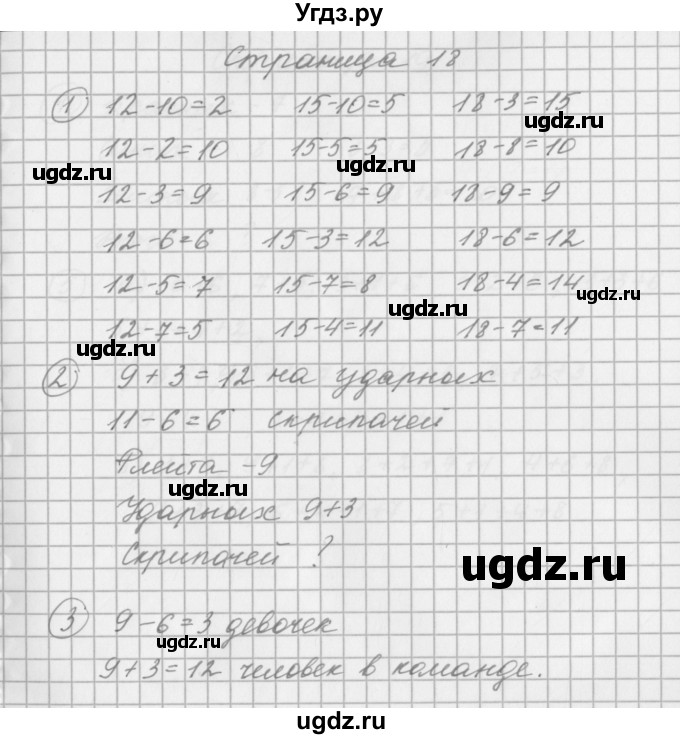 Угдз.ру
Страница 18
1 12-10=2 15-10=5 18-3=15
ugdz.ru
12-2=10 15-5=5 18-8=10
ugdz.ru ugdz.ru
12-3=9 15-6=9 18-9=9
12-6=6 15-3=12 18-6=12
12-5=7 15-7=8 18-4=14
ugdz.ru ugdz.ru
12-7=5 15-4=11 18-7=11
ugdz.ru ugdz.ru
2 9+3=12 на ударных
11-6=6 скрипачей
Флейта -9
ugdz.ru
Ударных 9+3
Скрипачей ?
ugdz.ru
3 9-6=3 девочек
ugdz.ru
9+3=12 человек в команде.
ugdz.ru